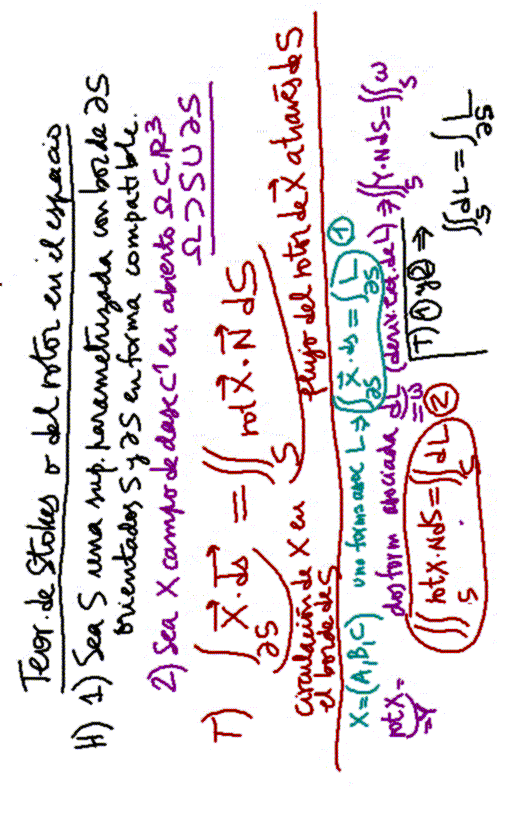 Teor. de Stokes o del rotor en el espacio
H) 1) Sea S una sup. parametrizada con borde ∂S
orientados S y ∂S en forma compatible.
2) Sea X campo de clase C¹ en abierto Ω ⊂ R³
Ω ⊃ S ∪ ∂S
T) ∫_∂S X⃗ · ds⃗ = ∬_S rot X⃗ · N⃗ dS
circulación de X en
el borde de S
flujo del rotor de X⃗ a través de S
X = (A, B, C) uno forma asoc L ⇒ ∫_∂S X⃗ · ds = ∫_∂S L ①
rot X = dos form asociada dL (deriv. ext. de L) ⇒ ∬_S Y · N dS = ∬_S ω
= Y = ω
∬_S rot X · N dS = ∬_S dL ②
T) ① y ② ⇒
∬_S dL = ∫_∂S L